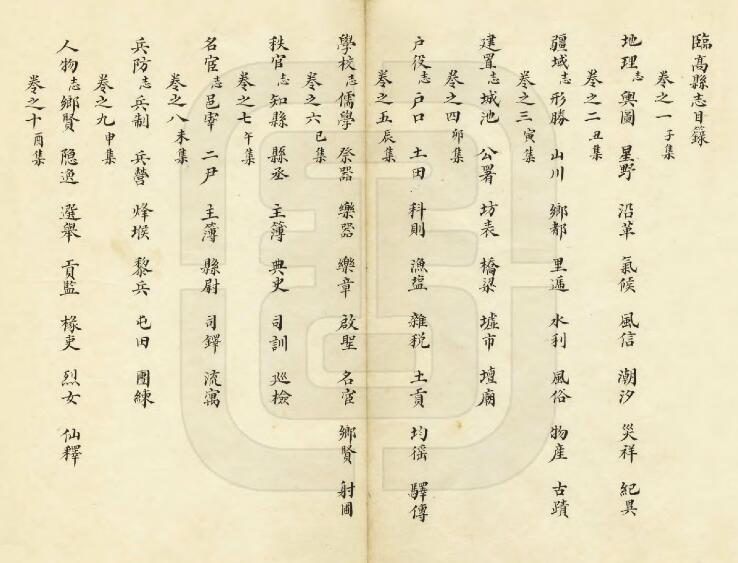 臨高縣志目錄
卷之一 子集
地理志 輿圖 星野 沿革 氣候 風信 潮汐 災祥 紀異
卷之二 丑集
疆域志 形勝 山川 鄉都 里遞 水利 風俗 物產 古蹟
卷之三 寅集
建置志 城池 公署 坊表 橋梁 墟市 壇廟
卷之四 卯集
户役志 户口 土田 科則 漁塩 雜稅 土貢 均徭 驛傳
卷之五 辰集
學校志 儒學 祭器 樂器 樂章 啟聖 名宦 鄉賢 射圃
卷之六 巳集
秩官志 知縣 縣丞 主簿 典史 司訓 廵檢
卷之七 午集
名宦志 邑宰 二尹 主簿 縣尉 司鐸 流寓
卷之八 未集
兵防志 兵制 兵營 烽堠 黎兵 屯田 團練
卷之九 申集
人物志 鄉賢 隐逸 選舉 貢監 椽吏 烈女 仙釋
卷之十 酉集